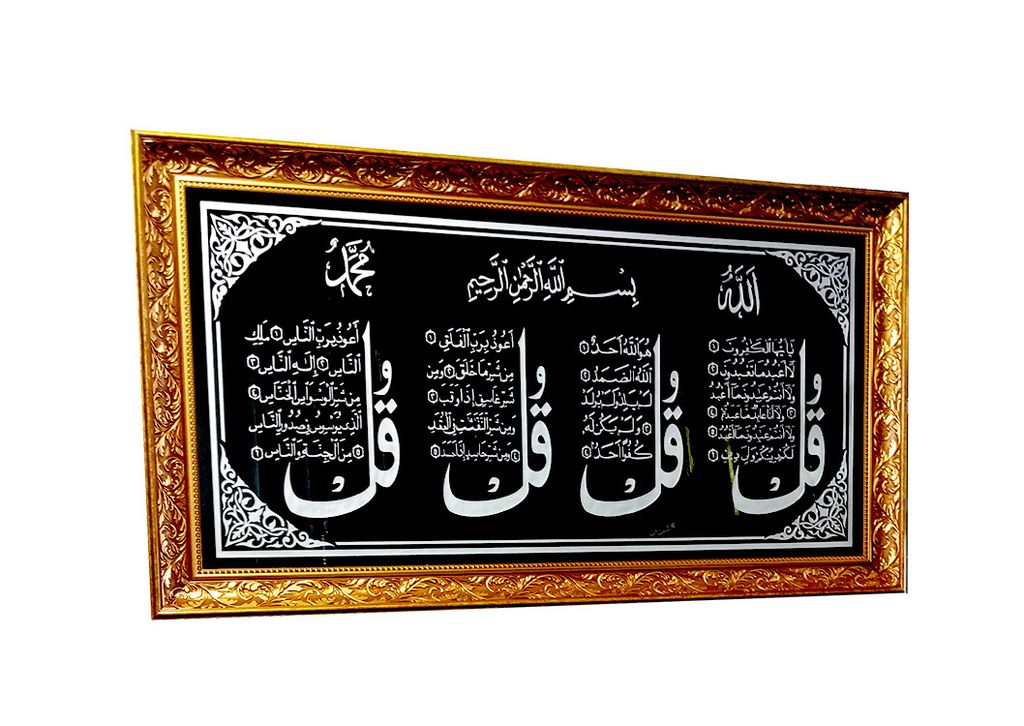 اللَّهُ
بِسْمِ اللَّهِ الرَّحْمَٰنِ الرَّحِيمِ
مُحَمَّدٌ
قُلْ
يَا أَيُّهَا الْكَٰفِرُونَ ١
لَا أَعْبُدُ مَا تَعْبُدُونَ ٢
وَلَا أَنْتُمْ عَٰبِدُونَ مَا أَعْبُدُ
٣ وَلَا أَنَا عَابِدٌ مَا عَبَدْتُمْ ٤
وَلَا أَنْتُمْ عَٰبِدُونَ مَا أَعْبُدُ ٥
لَكُمْ دِينُكُمْ وَلِيَ دِينِ ٦
قُلْ
هُوَ اللَّهُ أَحَدٌ ١
اللَّهُ الصَّمَدُ ٢
لَمْ يَلِدْ وَلَمْ يُولَدْ
٣ وَلَمْ يَكُنْ لَهُ
كُفُوًا أَحَدٌ ٤
قُلْ
أَعُوذُ بِرَبِّ الْفَلَقِ ١
مِنْ شَرِّ مَا خَلَقَ ٢ وَمِنْ
شَرِّ غَاسِقٍ إِذَا وَقَبَ ٣
وَمِنْ شَرِّ النَّفَّٰثَٰتِ فِي الْعُقَدِ
٤ وَمِنْ شَرِّ حَاسِدٍ إِذَا حَسَدَ ٥
قُلْ
أَعُوذُ بِرَبِّ النَّاسِ ١ مَلِكِ
النَّاسِ ٢ إِلَٰهِ النَّاسِ ٣
مِنْ شَرِّ الْوَسْوَاسِ الْخَنَّاسِ ٤
الَّذِي يُوَسْوِسُ فِي صُدُورِ النَّاسِ
٥ مِنَ الْجِنَّةِ وَالنَّاسِ ٦